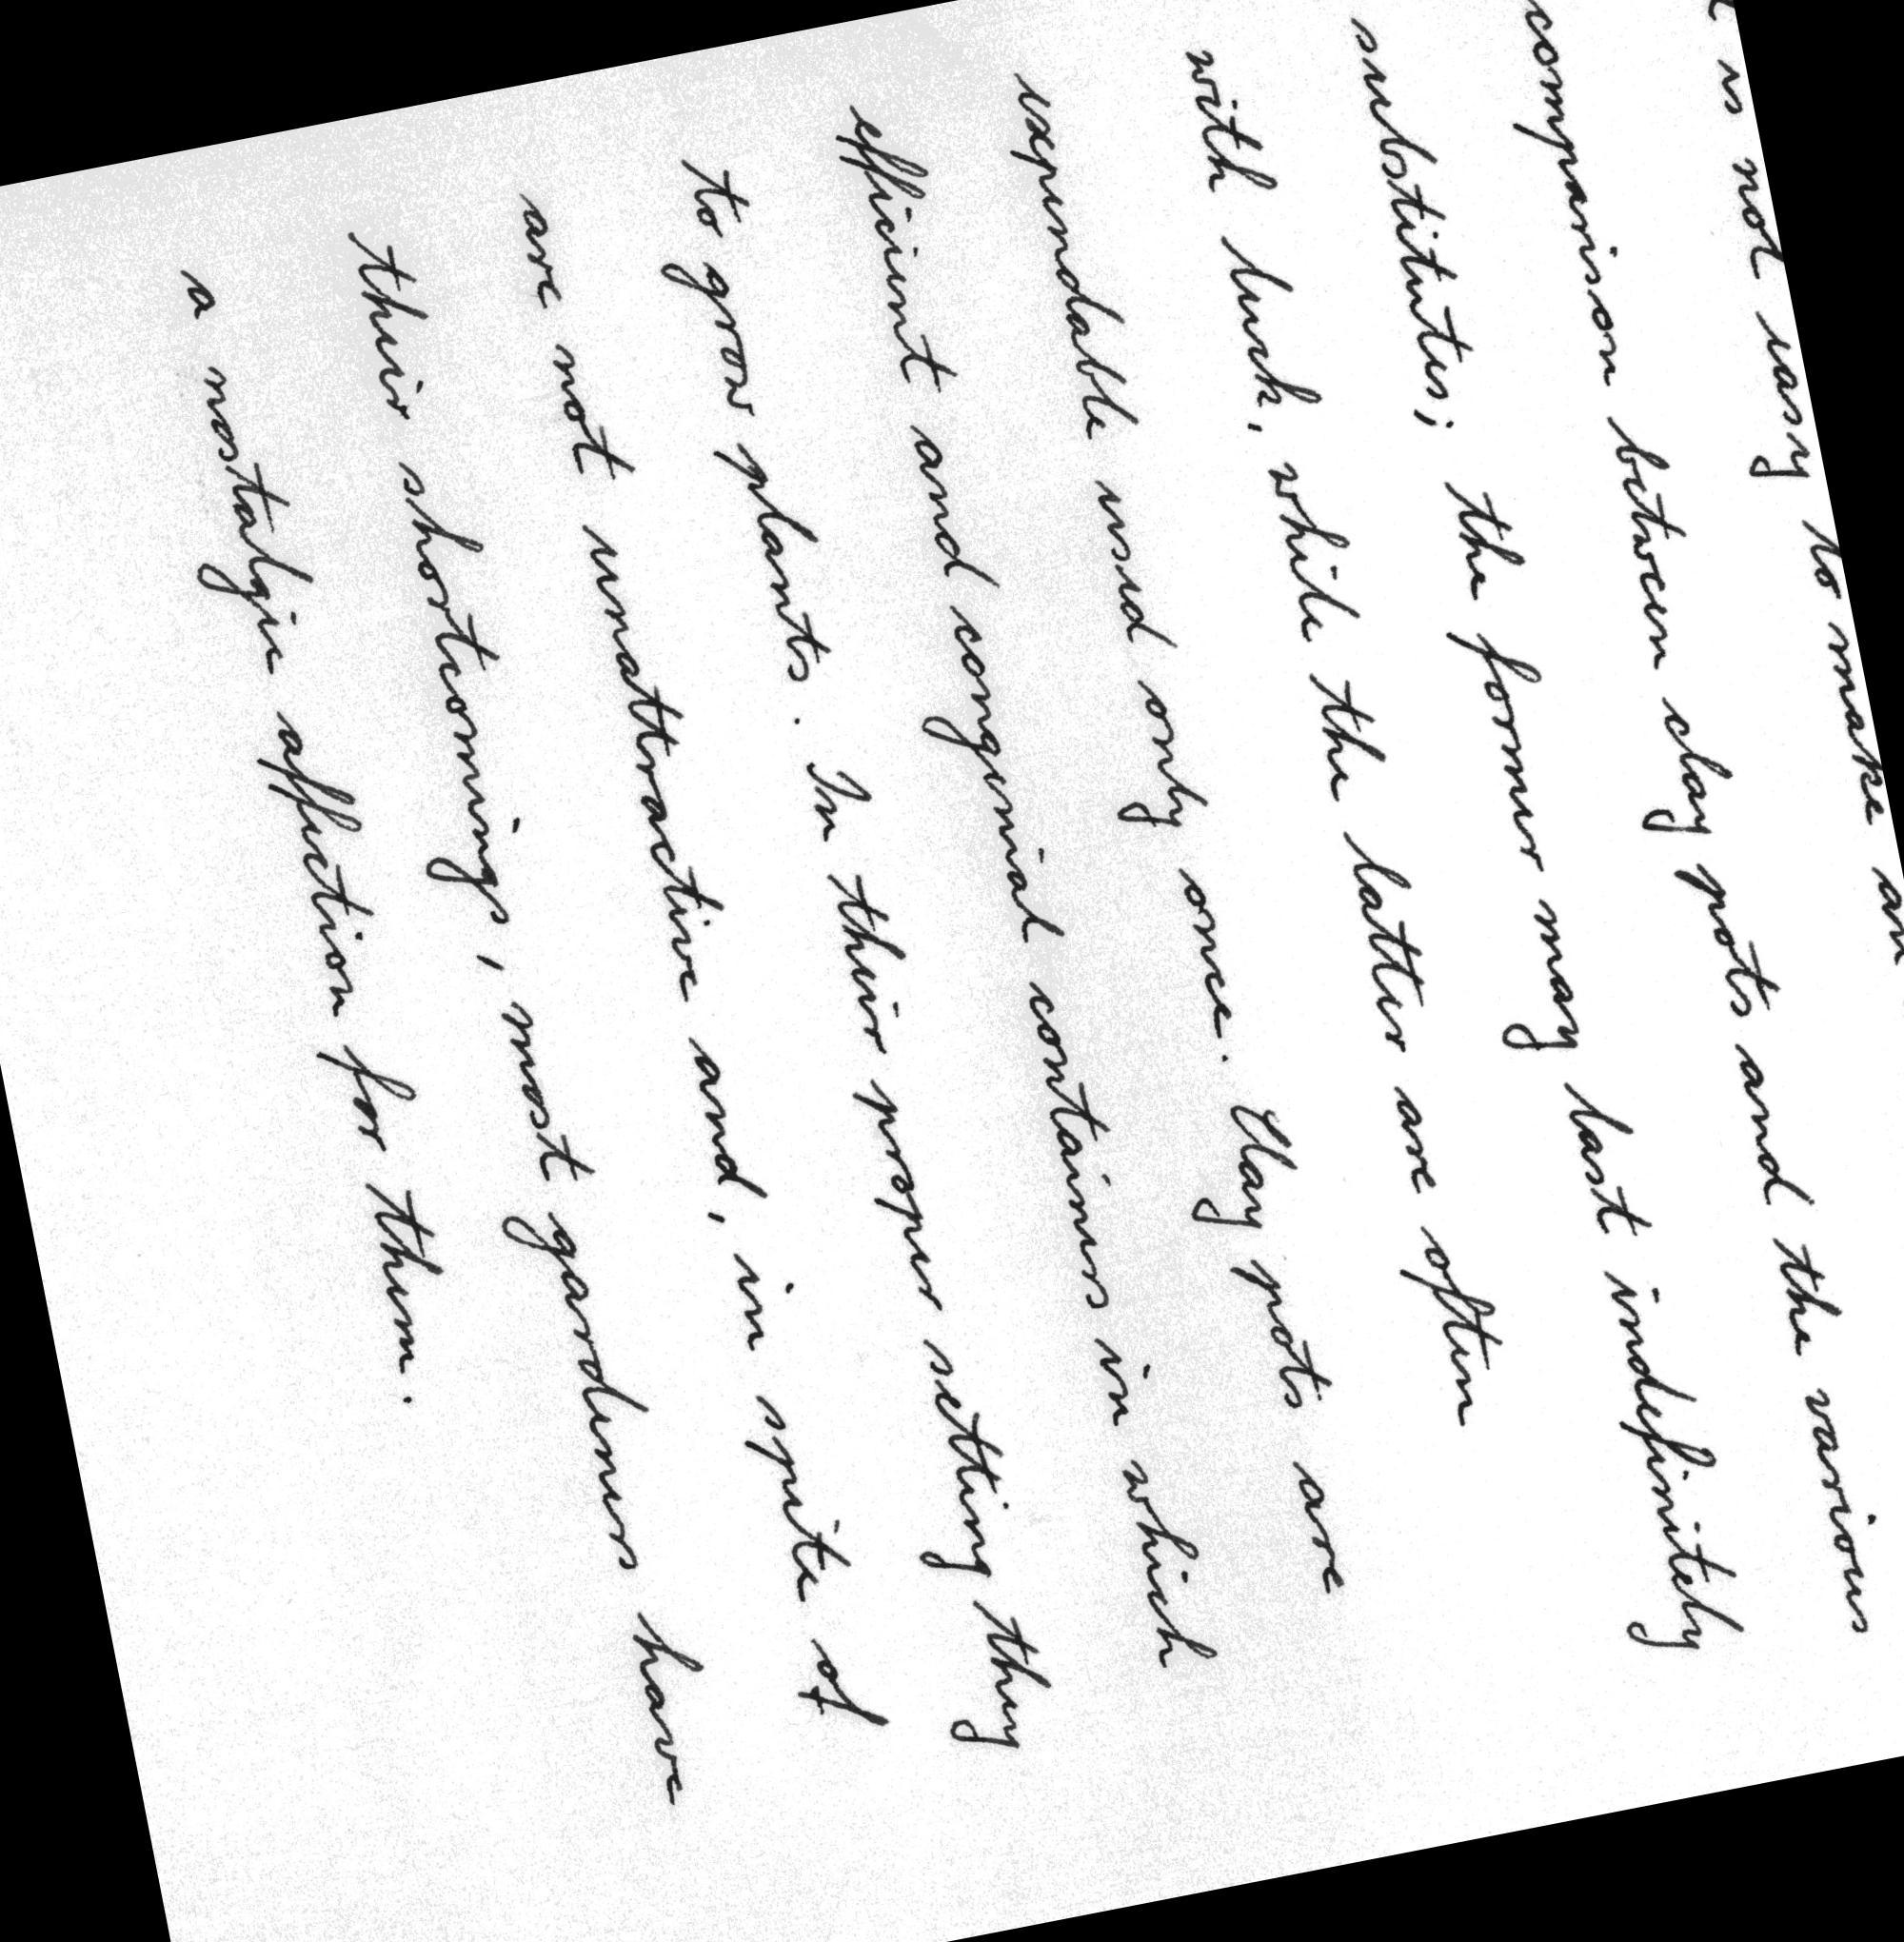 is not easy to make an
comparison between clay pots and the various
substitutes; the former may last indefinitely
with luck, while the latter are often
expendable used only once. Clay pots are
efficient and congenial containers in which
to grow plants. In their proper setting they
are not unattractive and, in spite of
their shortcomings, most gardeners have
a nostalgic affection for them.